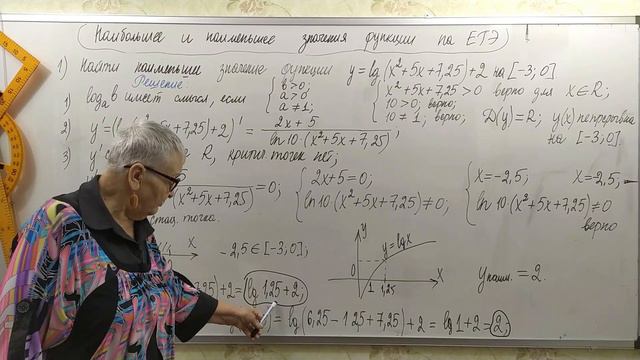 Наибольшее и наименьшее значения функции на ЕГЭ
1) Найти наименьшее значение функции y = lg(x²+5x+7,25)+2 на [-3; 0]
Решение:
1) log_a b имеет смысл, если { b>0; a>0; a≠1; { x²+5x+7,25>0 верно для x∈R; 10>0; верно; 10≠1; верно; D(y)=R; y(x) непрерывна на [-3; 0]
2) y' = (x²+5x+7,25)+2)' = (2x+5)/(ln10·(x²+5x+7,25)),
3) y' R, критич. точек нет;
(x²+5x+7,25) = 0; { 2x+5=0; ln10·(x²+5x+7,25)≠0; { x=-2,5; x=-2,5, ln10·(x²+5x+7,25)≠0 верно
стац. точка.
x -2,5∈[-3;0]; y y=lgx 0 1 1,25 x y наим. = 2.
,25)+2 = lg 1,25+2;
= lg(6,25-12,5+7,25)+2 = lg1+2 = 2;